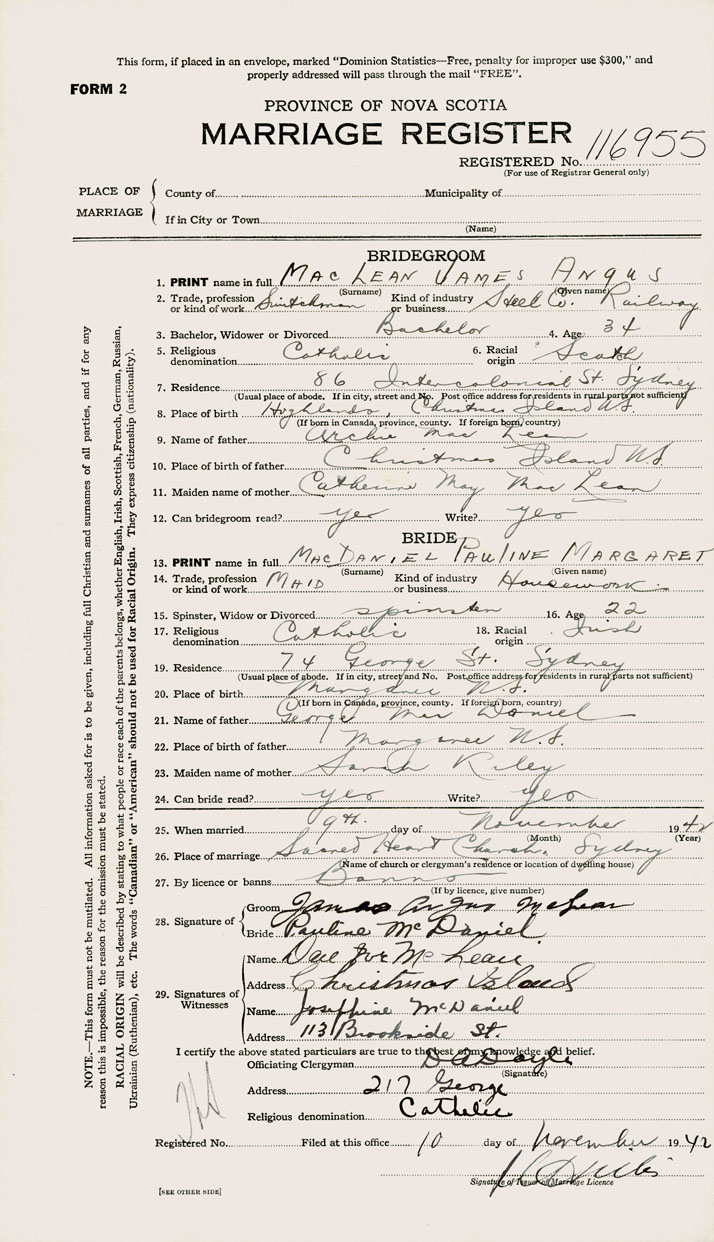 This form, if placed in an envelope, marked "Dominion Statistics—Free, penalty for improper use $300," and
properly addressed will pass through the mail "FREE".
FORM 2
PROVINCE OF NOVA SCOTIA
MARRIAGE REGISTER
REGISTERED No. 116955
(For use of Registrar General only)
PLACE OF MARRIAGE
County of Municipality of
If in City or Town
(Name)
BRIDEGROOM
1. PRINT name in full MacLean James Angus
(Surname) (Given name)
2. Trade, profession or kind of work Switchman Kind of industry or business Steel Co. Railway
3. Bachelor, Widower or Divorced Bachelor 4. Age 34
5. Religious denomination Catholic 6. Racial origin Scotch
7. Residence 86 Intercolonial St. Sydney
(Usual place of abode. If in city, street and No. Post office address for residents in rural parts not sufficient)
8. Place of birth Highlands, Christmas Island N.S.
(If born in Canada, province, county. If foreign born, country)
9. Name of father Archie MacLean
10. Place of birth of father Christmas Island N.S.
11. Maiden name of mother Catherine May MacLean
12. Can bridegroom read? yes Write? yes
BRIDE
13. PRINT name in full MacDaniel Pauline Margaret
(Surname) (Given name)
14. Trade, profession or kind of work Maid Kind of industry or business Housework
15. Spinster, Widow or Divorced spinster 16. Age 22
17. Religious denomination Catholic 18. Racial origin Irish
19. Residence 74 George St. Sydney
(Usual place of abode. If in city, street and No. Post office address for residents in rural parts not sufficient)
20. Place of birth Margaree N.S.
(If born in Canada, province, county. If foreign born, country)
21. Name of father George MacDaniel
22. Place of birth of father Margaree N.S.
23. Maiden name of mother Sarah Riley
24. Can bride read? yes Write? yes
25. When married 9th. day of November 1942
(Month) (Year)
26. Place of marriage Sacred Heart Church, Sydney
(Name of church or clergyman's residence or location of dwelling house)
27. By licence or banns Banns
(If by licence, give number)
28. Signature of
Groom James Angus McLean
Bride Pauline McDaniel
29. Signatures of Witnesses
Name Joe McLean
Address Christmas Island
Name Josephine McDaniel
Address 113 Brookside St.
I certify the above stated particulars are true to the best of my knowledge and belief.
Officiating Clergyman Doyle
(Signature)
Address 217 George
Religious denomination Catholic
Registered No. Filed at this office 10 day of November 1942
Signature of Issuer of Marriage Licence
[SEE OTHER SIDE]
NOTE.—This form must not be mutilated. All information asked for is to be given, including full Christian and surnames of all parties, and if for any
reason this is impossible, the reason for the omission must be stated.
RACIAL ORIGIN will be described by stating to what people or race each of the parents belongs, whether English, Irish, Scottish, French, German, Russian,
Ukrainian (Ruthenian), etc. The words "Canadian" or "American" should not be used for Racial Origin. They express citizenship (nationality).